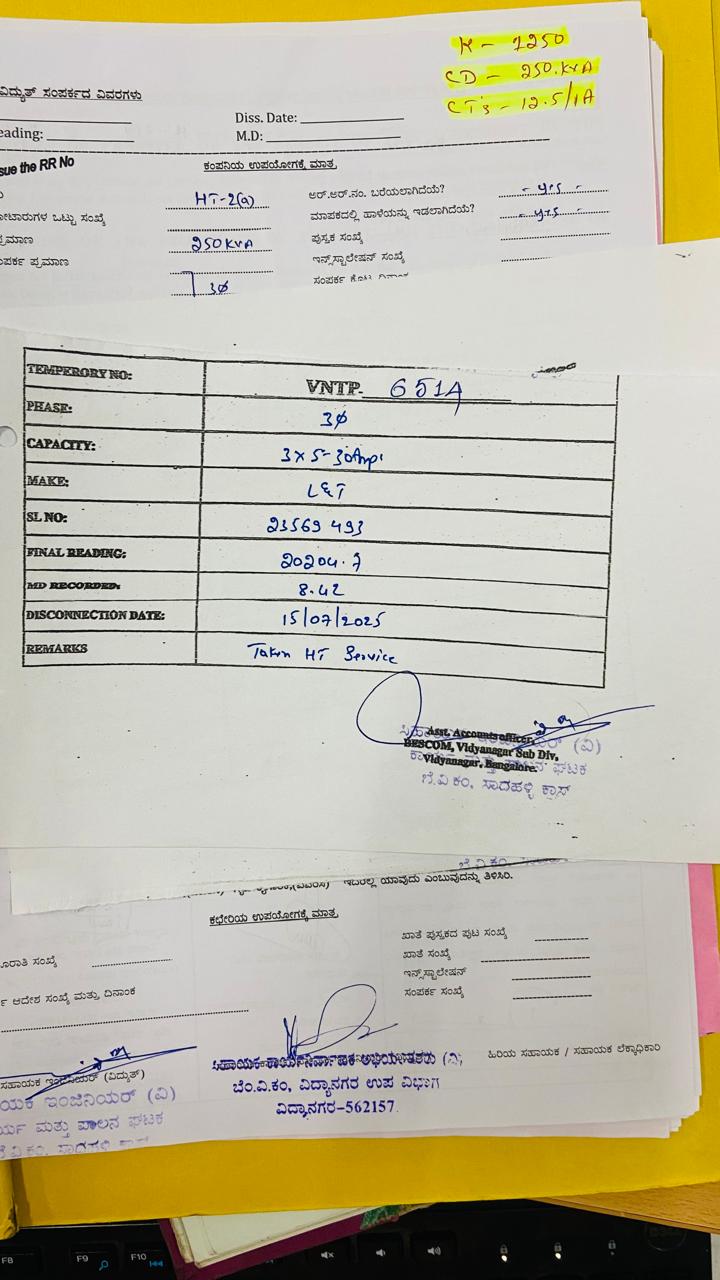 K - 1250
CD - 250.KVA
CT's - 12.5/1A
ವಿದ್ಯುತ್ ಸಂಪರ್ಕದ ವಿವರಗಳು
Diss. Date:
eading:
M.D:
sue the RR No
ಕಂಪನಿಯ ಉಪಯೋಗಕ್ಕೆ ಮಾತ್ರ
HT-2(a)
ಆರ್.ಆರ್.ನಂ. ಬರೆಯಲಾಗಿದೆಯೆ? - yes -
ೋಟಾರುಗಳ ಒಟ್ಟು ಸಂಖ್ಯೆ
ಮಾಪಕದಲ್ಲಿ ಹಾಳೆಯನ್ನು ಇಡಲಾಗಿದೆಯೆ? - yes -
ಪ್ರಮಾಣ 250KVA
ಪುಸ್ತಕ ಸಂಖ್ಯೆ
ಂಪರ್ಕ ಪ್ರಮಾಣ
ಇನ್ಸ್‌ಸ್ಟಾಲೇಷನ್ ಸಂಖ್ಯೆ
3Ø
ಸಂಪರ್ಕ
TEMPERORY NO: VNTP 6514
PHASE: 3Ø
CAPACITY: 3 x 5-30Amp
MAKE: L&T
SL NO: 23569493
FINAL READING: 20204.7
MD RECORDED: 8.42
DISCONNECTION DATE: 15/07/2025
REMARKS Taken HT Service
Asst. Accounts officer,
BESCOM, Vidyanagar Sub Div,
Vidyanagar, Bangalore.
ಬೆ.ವಿ.ಕಂ, ಸಾದಹಳ್ಳಿ ಕ್ರಾಸ್
ಇದರಲ್ಲಿ ಯಾವುದು ಎಂಬುವುದನ್ನು ತಿಳಿಸಿರಿ.
ಕಛೇರಿಯ ಉಪಯೋಗಕ್ಕೆ ಮಾತ್ರ
ಖಾತೆ ಪುಸ್ತಕದ ಪುಟ ಸಂಖ್ಯೆ
ೂರಾತಿ ಸಂಖ್ಯೆ
ಖಾತೆ ಸಂಖ್ಯೆ
ಇನ್ಸ್‌ಸ್ಟಾಲೇಷನ್
ಆದೇಶ ಸಂಖ್ಯೆ ಮತ್ತು ದಿನಾಂಕ
ಸಂಪರ್ಕ ಸಂಖ್ಯೆ
ಹಿರಿಯ ಸಹಾಯಕ / ಸಹಾಯಕ ಲೆಕ್ಕಾಧಿಕಾರಿ
ಸಹಾಯಕ ಇಂಜಿನಿಯರ್ (ವಿದ್ಯುತ್)
ಯಕ ಇಂಜಿನಿಯರ್ (ವಿ)
ರ್ಯ ಮತ್ತು ಪಾಲನ ಘಟಕ
ಬೆಂ.ವಿ.ಕಂ, ವಿದ್ಯಾನಗರ ಉಪ ವಿಭಾಗ
ವಿದ್ಯಾನಗರ-562157.
F8
F9
F10